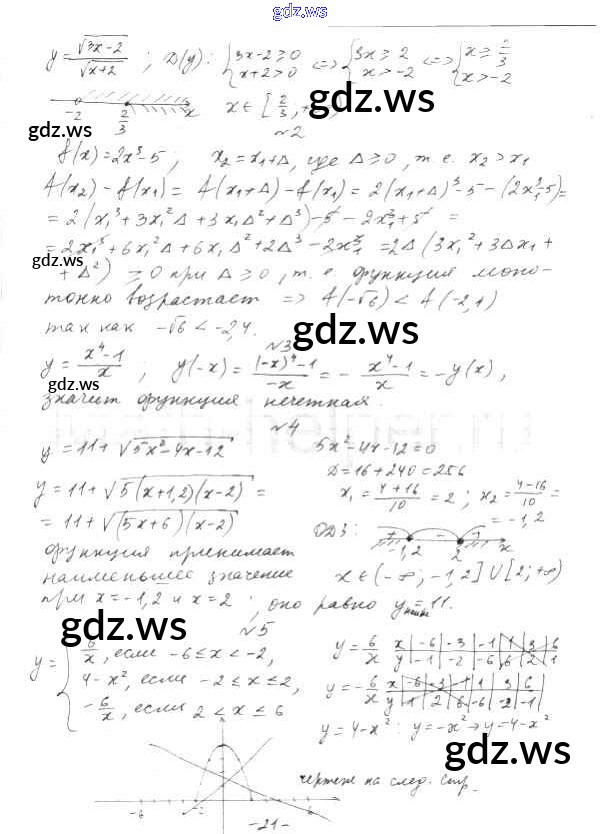 gdz.ws
y = √(3x-2)/√(x+2) ; D(y): { 3x-2 ≥ 0, x+2 > 0 <=> { 3x ≥ 2, x > -2 <=> { x ≥ 2/3, x > -2
-2 2/3 x x ∈ [2/3, +
gdz.ws
gdz.ws
№2
f(x) = 2x³-5; x₂ = x₁+Δ, где Δ ≥ 0, т.е. x₂ > x₁
f(x₂) - f(x₁) = f(x₁+Δ) - f(x₁) = 2(x₁+Δ)³-5-(2x₁³-5) =
= 2(x₁³+3x₁²Δ+3x₁Δ²+Δ³)-5-2x₁³+5 =
= 2x₁³+6x₁²Δ+6x₁Δ²+2Δ³-2x₁³ = 2Δ(3x₁²+3Δx₁+
gdz.ws
+Δ²) ≥ 0 при Δ ≥ 0, т.е. функция моно-
тонно возрастает => f(-√6) < f(-2,4)
так как -√6 < -2,4.
gdz.ws
№3
y = (x⁴-1)/x ; y(-x) = ((-x)⁴-1)/(-x) = - (x⁴-1)/x = -y(x),
gdz.ws
gdz.ws
значит функция нечетная.
№4
y = 11+√(5x²-4x-12) 5x²-4x-12=0
D=16+240=256
y = 11+√(5(x+1,2)(x-2)) = x₁ = (4+16)/10 = 2; x₂ = (4-16)/10 =
= -1,2
= 11+√((5x+6)(x-2)) ОДЗ: + - + -1,2 2 x
функция принимает
наименьшее значение x ∈ (-∞; -1,2] ∪ [2; +∞)
при x=-1,2 и x=2; оно равно yнаим=11.
gdz.ws
№5
y = { 6/x, если -6 ≤ x < -2,
4-x², если -2 ≤ x ≤ 2,
-6/x, если 2 < x ≤ 6
y = 6/x x | -6 | -3 | -1 | 1 | 3 | 6
y | -1 | -2 | -6 | 6 | 2 | 1
y = -6/x x | -6 | -3 | -1 | 1 | 3 | 6
y | 1 | 2 | 6 | -6 | -2 | -1
y = 4-x²: y = -x² → y = 4-x²
gdz.ws
чертеж на след. стр.
-6 -2 6
-21-
gdz.ws